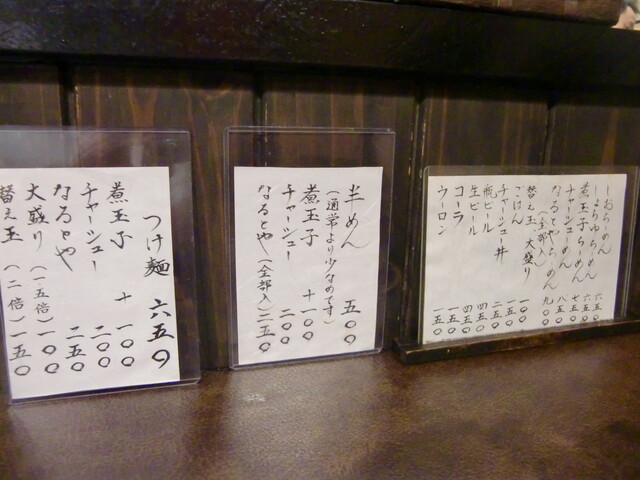 しおらーめん 六五〇
しょうゆらーめん 六五〇
煮玉子らーめん 七五〇
チャーシューめん 八五〇
なるとやらーめん 九〇〇
(全部入)
替え玉 大盛り 一〇〇
ごはん 一〇〇
チャーシュー丼 二五〇
瓶ビール 四五〇
生ビール 四五〇
コーラ 一五〇
ウーロン 一五〇
半めん 五〇〇
(通常より少なめです)
煮玉子 十一〇〇
チャーシュー 二〇〇
なるとや(全部入)二五〇
つけ麺 六五〇
煮玉子 十一〇〇
チャーシュー 二〇〇
なるとや 二五〇
大盛り(一・五倍)一〇〇
替え玉(二倍)一五〇